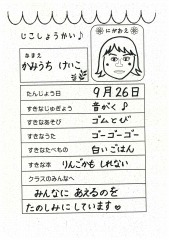 じこしょうかい♪
なまえ
かみうち けいこ
にがおえ
たんじょう日 9月26日
すきなじゅぎょう 音がく♪
すきなあそび ゴムとび
すきなうた ゴーゴーゴー
すきなたべもの 白いごはん
すきな本 りんごかも しれない
クラスのみんなへ
みんなに あえるのを
たのしみにしています♥